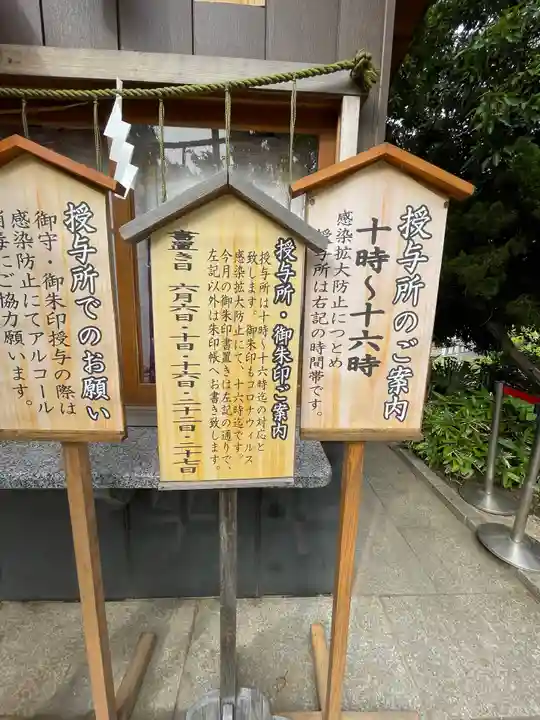 授与所のご案内
十時〜十六時
感染拡大防止につとめ
授与所は右記の時間帯です。
授与所・御朱印ご案内
授与所は十時〜十六時迄の対応と
致します。御朱印もコロナウィルス
感染拡大防止にて、十六時迄です。
今月の御朱印書置きは左記の通りで、
左記以外は朱印帳へお書き致します。
書置き日 六月六日・十日・十六日・二十二日・二十七日
授与所でのお願い
御守・御朱印授与の際は
感染防止にてアルコール
消毒にご協力願います。